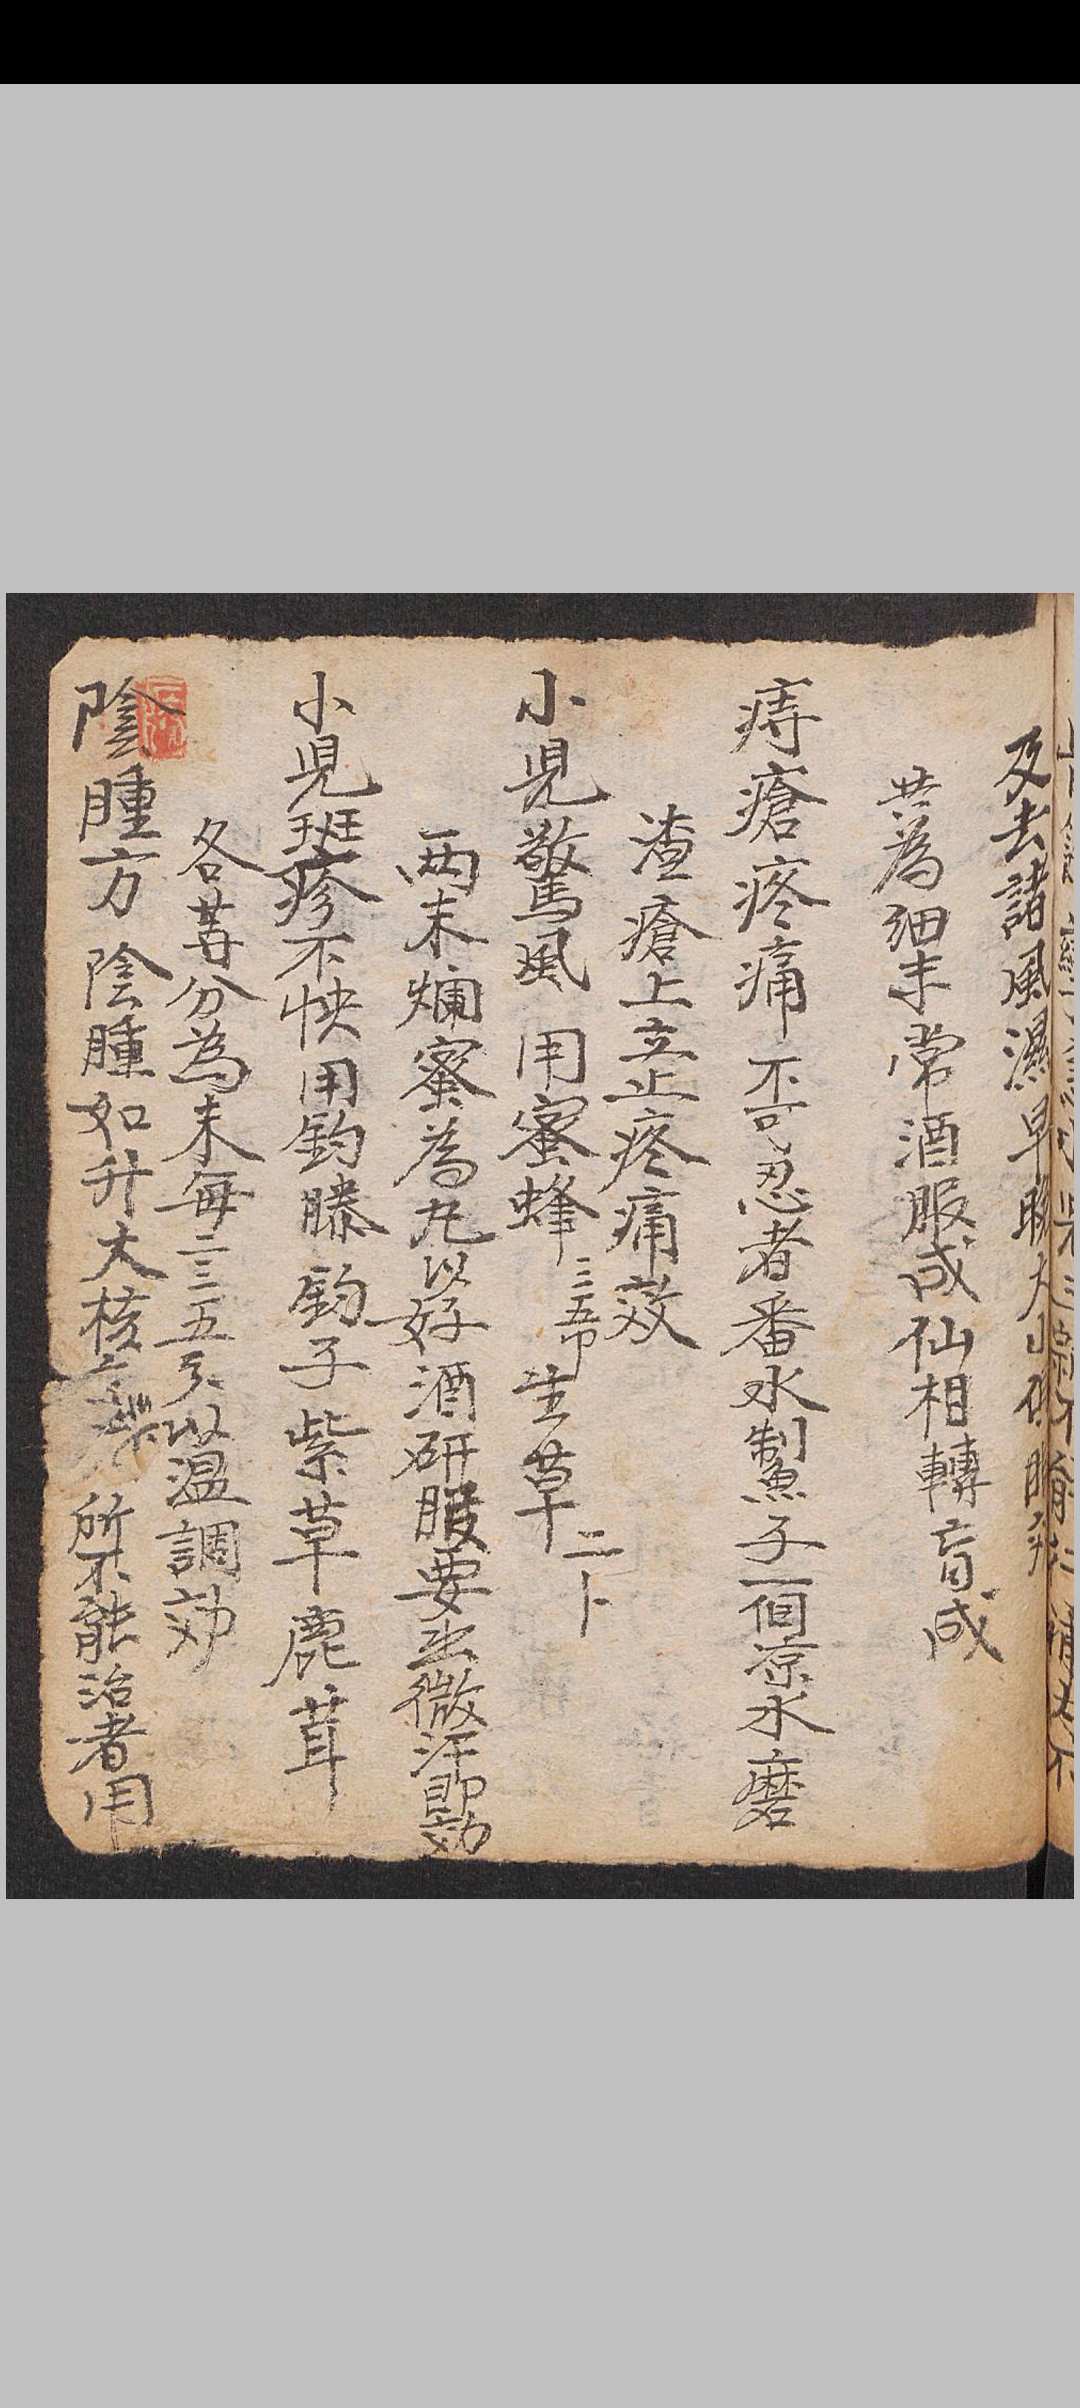 及去諸風濕早晚
共為細末常酒服成仙相轉盲成
痔瘡疼痛不可忍者番水鱉子一個凉水磨
渣瘡上立止疼痛效
小児驚風 用蜜蜂三五卩生草二卜
两末爛蜜為丸以好酒研服要出微汗即効
小児斑疹不快用鈎藤鈎子紫草鹿茸
各等分為末每二三五分以温調効
陰腫方 陰腫如升大核 所不能治者用